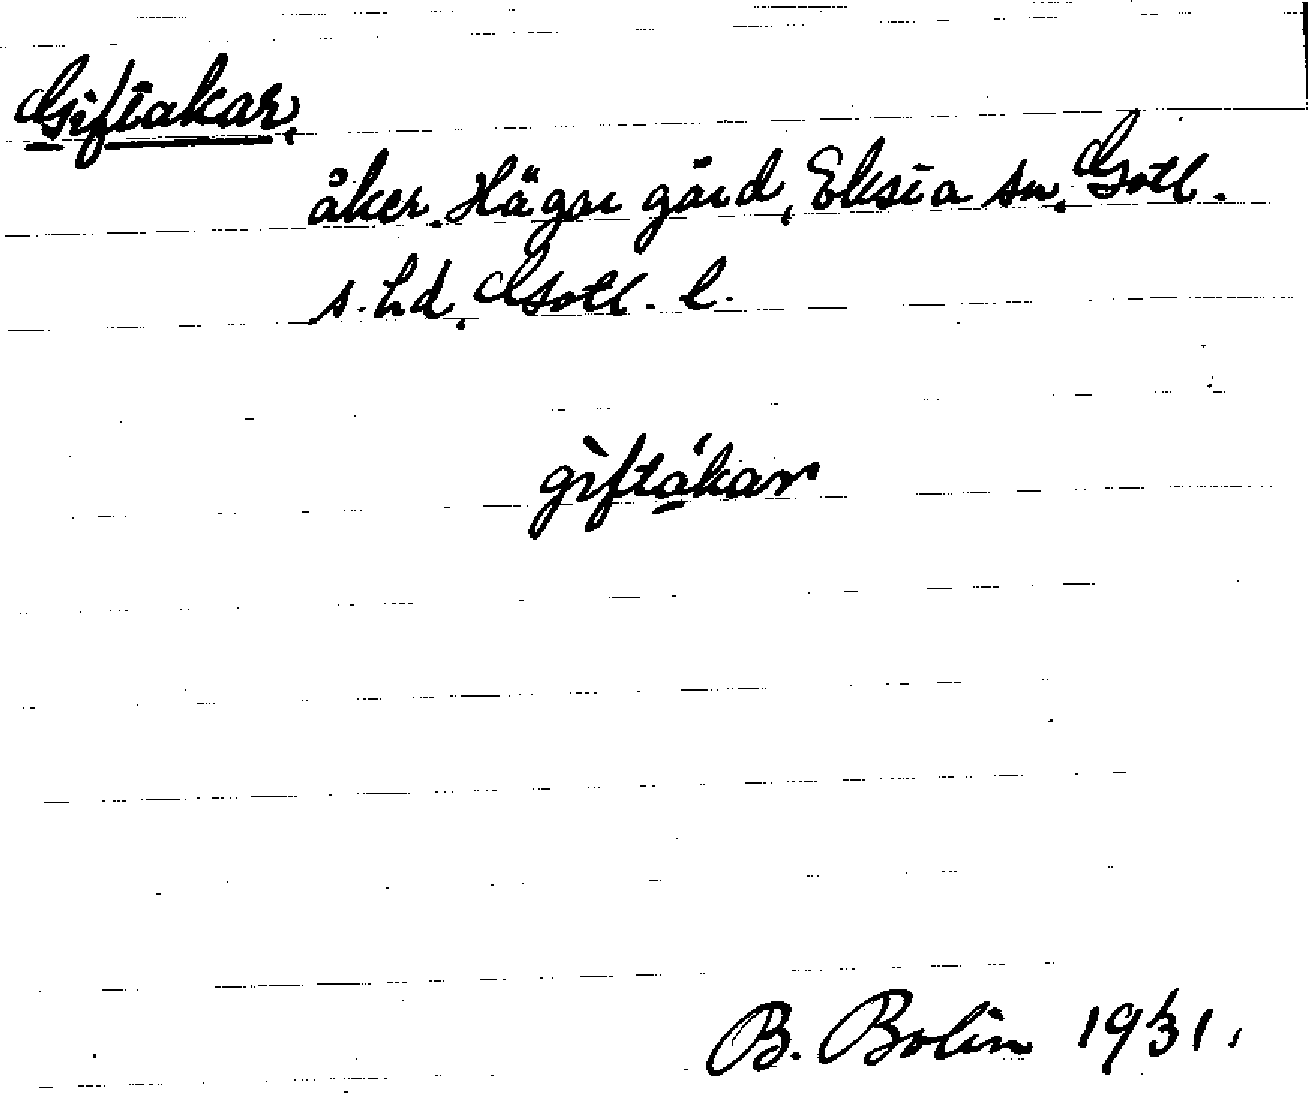 Giftakar,
åker. Hägur gård, Eksta sn. Gotl.
s. hd. Gotl. l.
gìftákar
B. Bolin 1931.